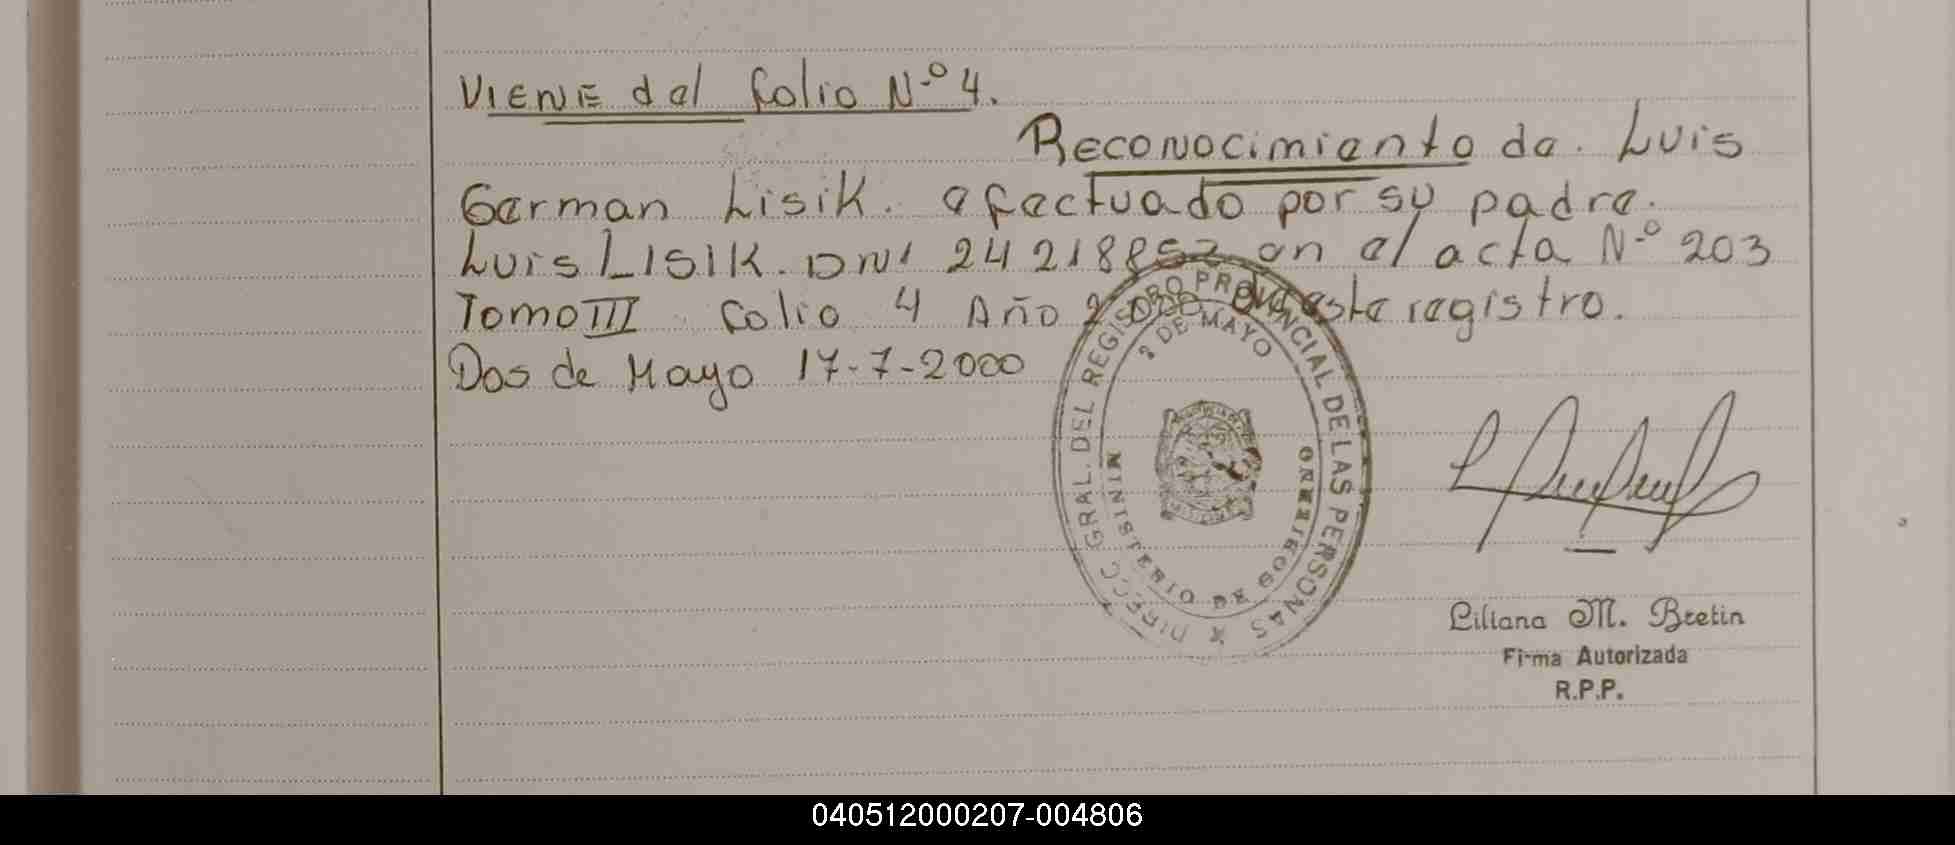 VIENE del folio N.º 4.
Reconocimiento de. Luis
German Lisik. efectuado por su padre.
Luis LISIK. DNI 24218852 en el acta Nº 203
Tomo III folio 4 Año 2.000 de este registro.
Dos de Mayo 17-7-2000
DIRECC GRAL. DEL REGISTRO PROVINCIAL DE LAS PERSONAS
2 DE MAYO
MINISTERIO DE GOBIERNO
MISIONES
Liliana M. Bretin
Firma Autorizada
R.P.P.
040512000207-004806